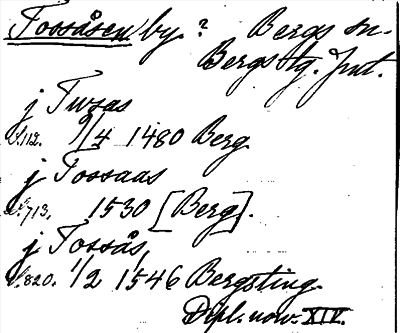 Tossåsen by? Bergs sn.
Bergs tg. Jmt.
j Twsas
S.112. 9/4 1480 Berg
j Tossaas
S.713. 1530 [Berg].
j Tossås,
S.820. 1/2 1546 Bergsting.
Dipl. norv. XIV.